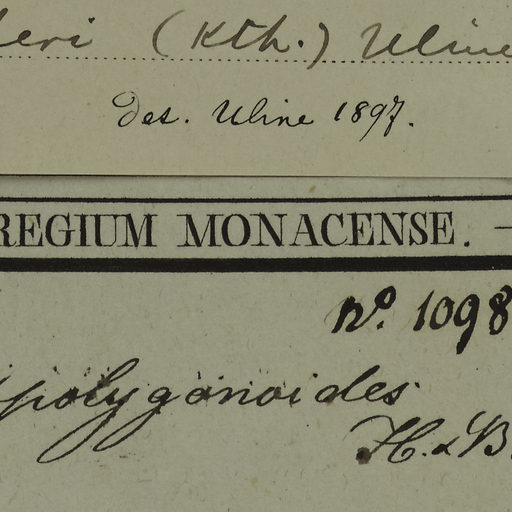 leri (Kth.) Uline
Det. Uline 1897.
REGIUM MONACENSE. —
no. 1098
polygonoides
H. & B.